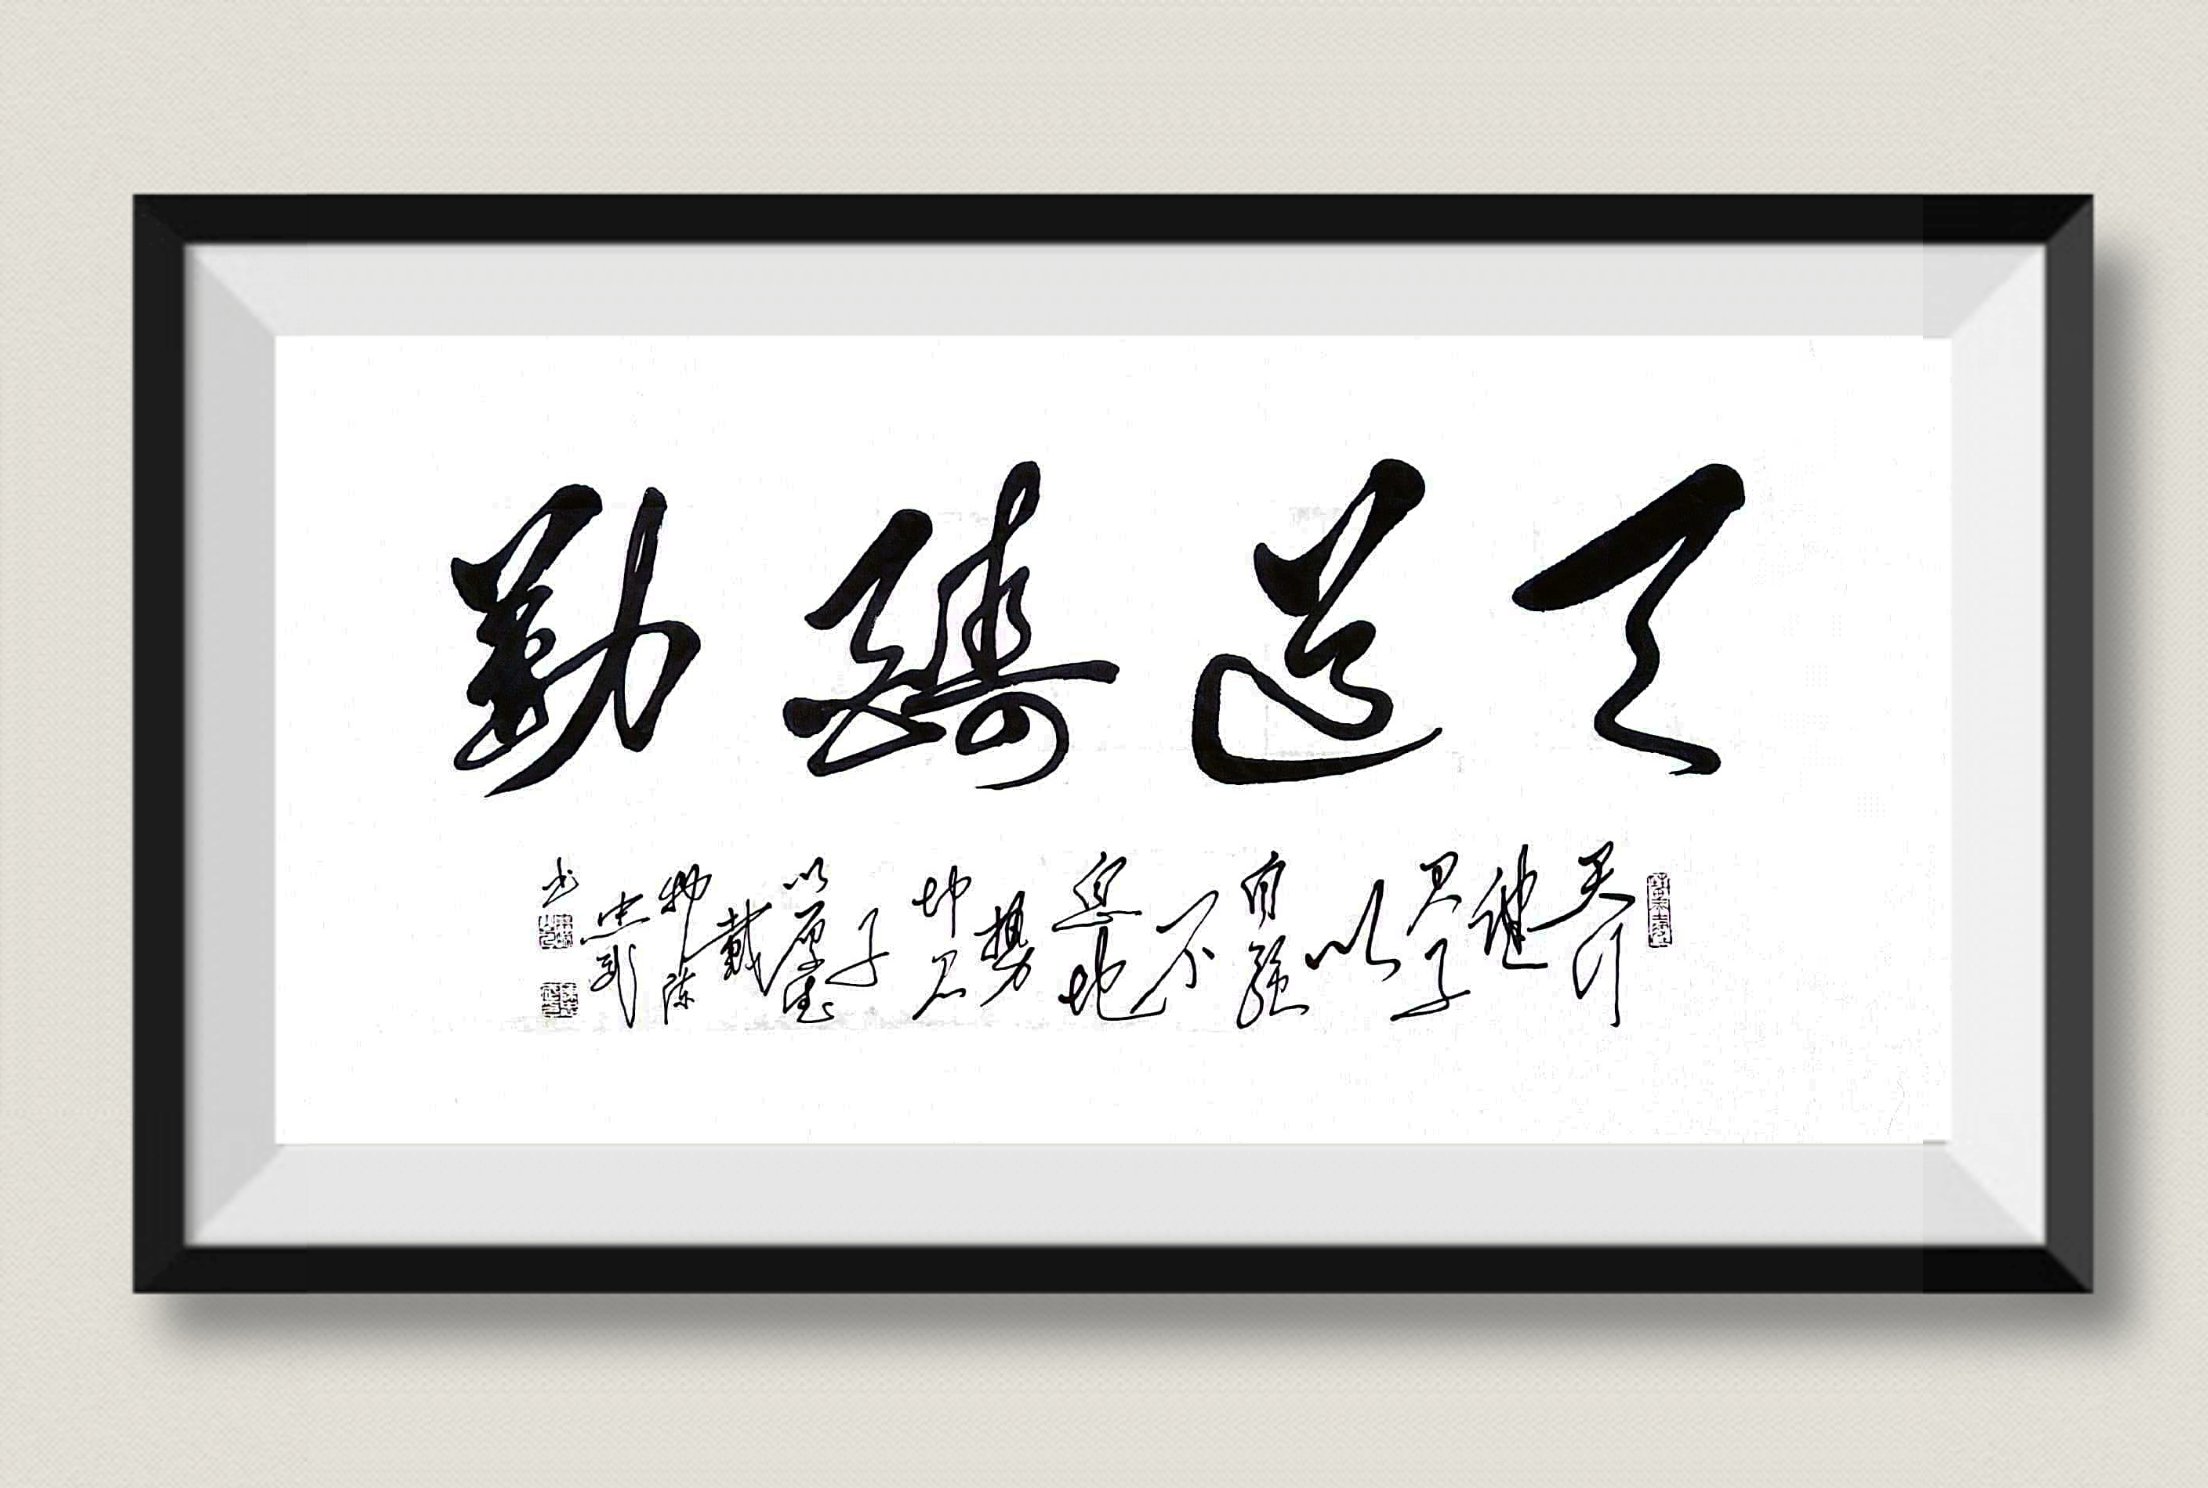 天道酬勤
天行健君子以自強不息地勢坤君子以厚德載物陈忠利书